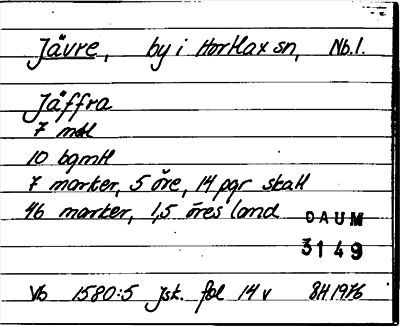 Jävre, by i Hortlax sn, Nb.l.
Jäffra
7 mtl
10 bgmtl
7 marker, 5 öre, 14 pgr skatt
46 marker, 1,5 öres land
OAUM
3149
Vb 1580:5 jsk. fol 14 v BH 1976